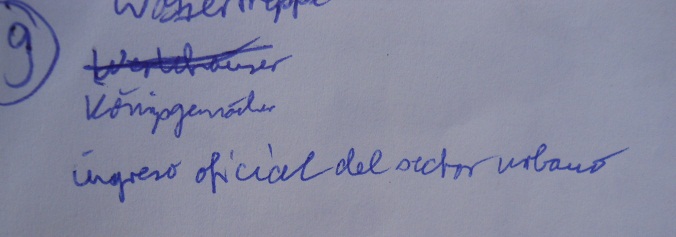 9
Wassertreppe
Wirtshäuser
Königsgemächer
ingreso oficial del sector urbano